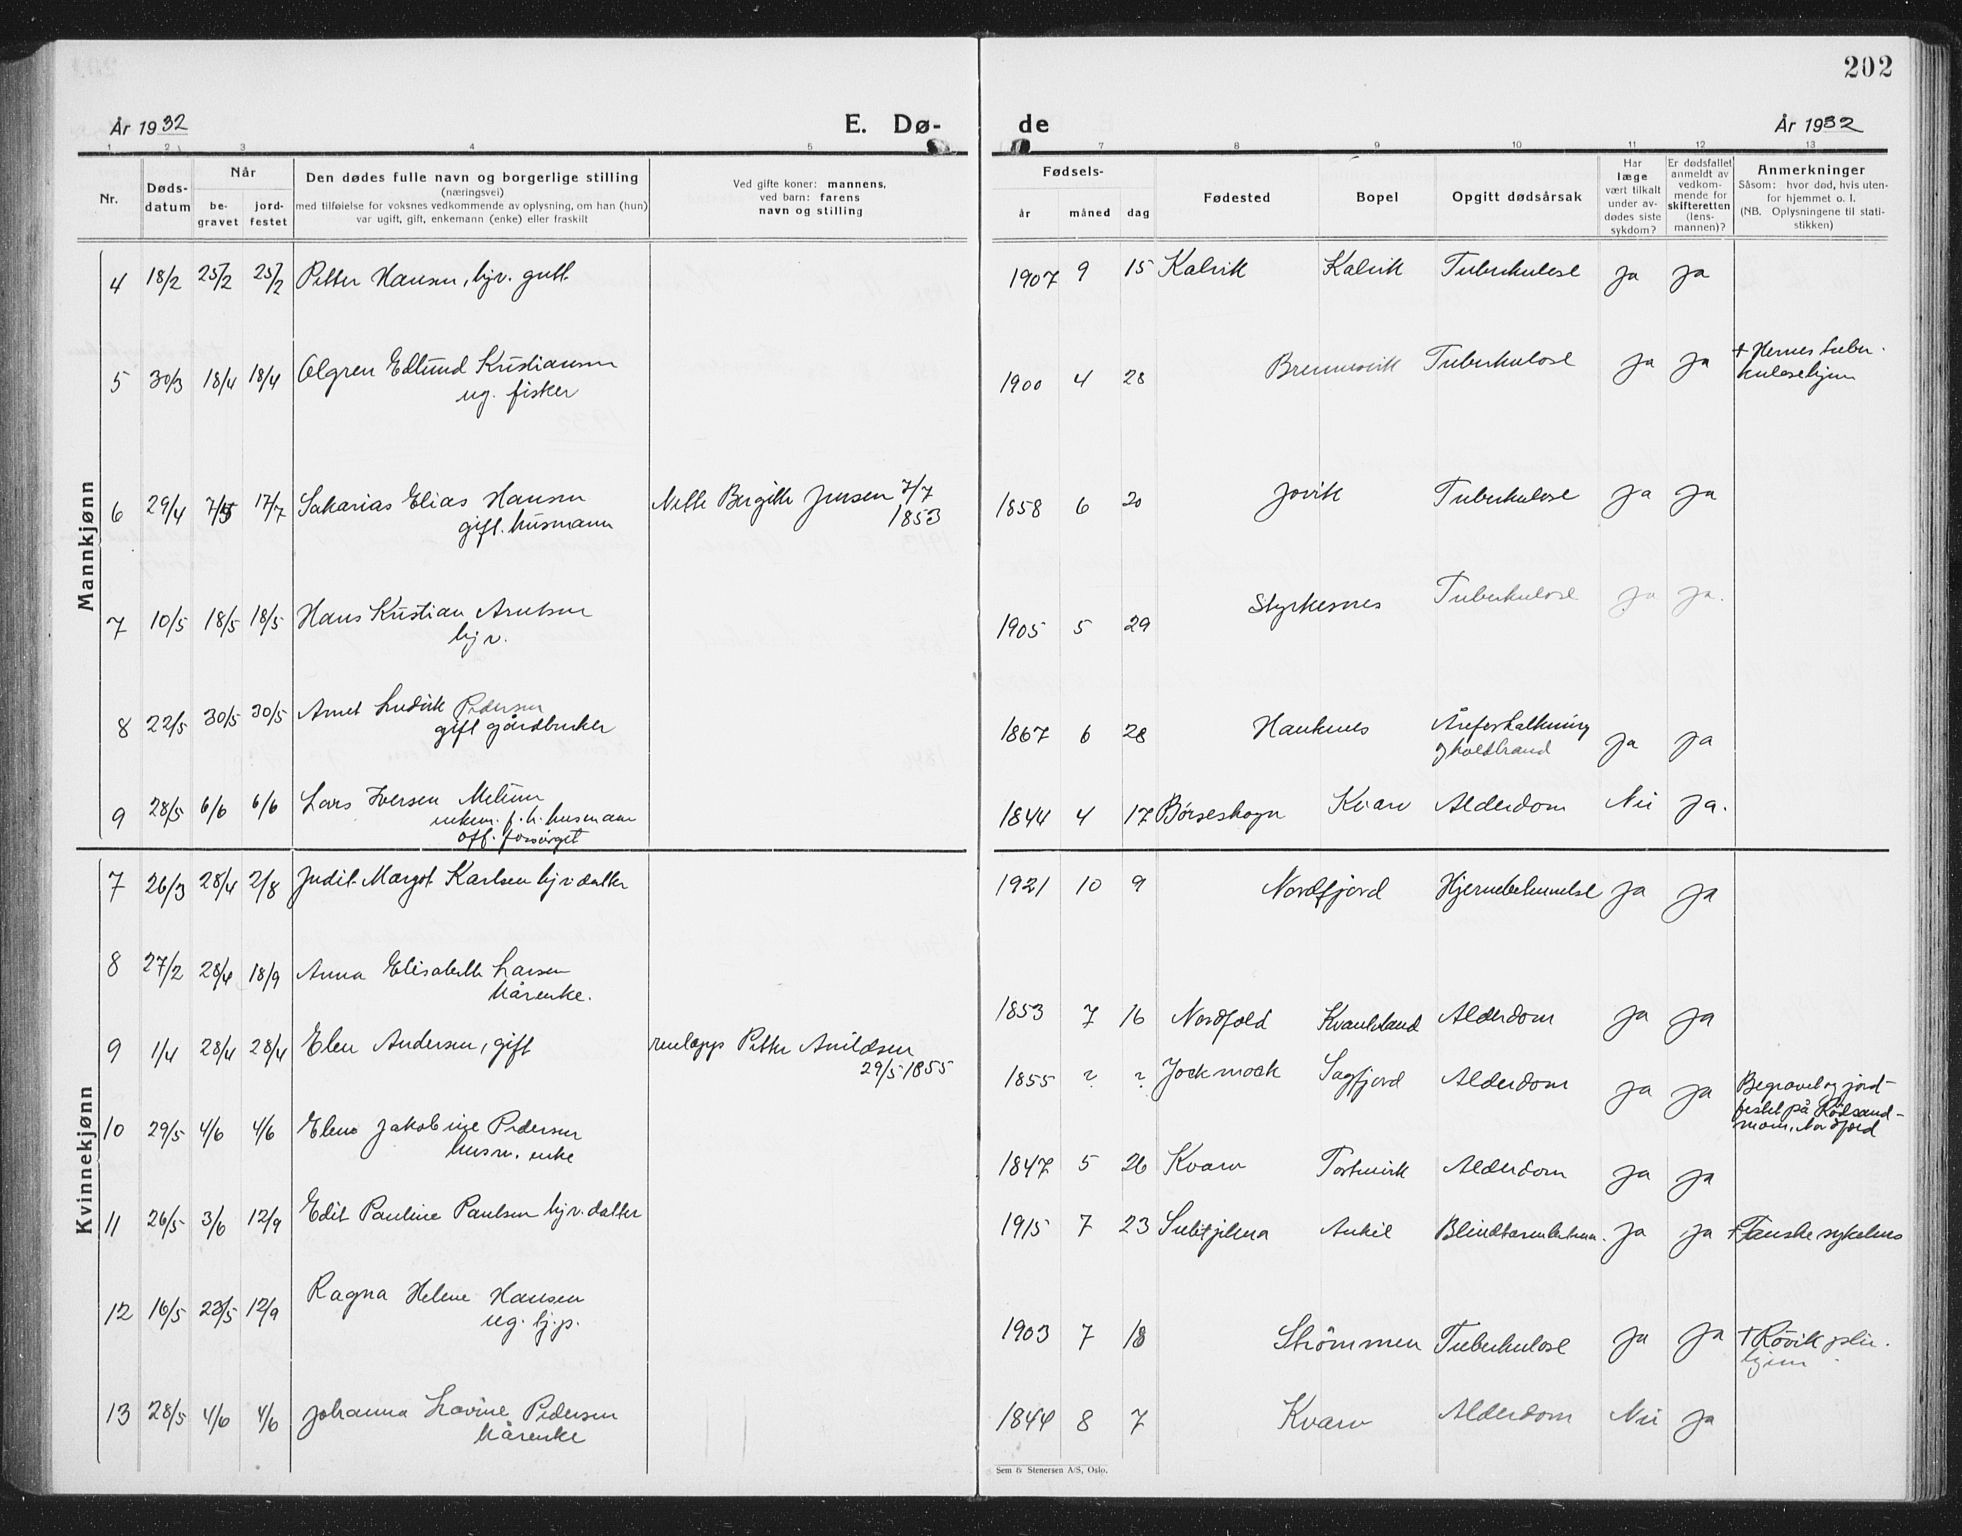 202
År 1932 E. Dø- de År 1932
1 2 3 4 5 7 8 9 10 11 12 13
Nr.
Døds-
datum
Når
be-
gravet
jord-
festet
Den dødes fulle navn og borgerlige stilling
(næringsvei)
med tilføielse for voksnes vedkommende av oplysning, om han (hun)
var ugift, gift, enkemann (enke) eller fraskilt
Ved gifte koner: mannens,
ved barn: farens
navn og stilling
Fødsels-
år måned dag
Fødested
Bopel
Opgitt dødsårsak
Har
læge
vært tilkalt
under av-
dødes siste
sykdom?
Er dødsfallet
anmeldt av
vedkom-
mende for
skifteretten
(lens-
mannen)?
Anmerkninger
Såsom: hvor død, hvis uten-
for hjemmet o. l.
(NB. Oplysningene til stati-
stikken)
Mannkjønn
4 18/2 25/2 25/2 Petter Hansen, hjv. gutt 1907 9 15 Kalvik Kalvik Tuberkulose Ja Ja
5 30/3 18/4 18/4 Olgren Edlund Kristiansen 1900 4 28 Brennvik Tuberkulose Ja Ja + Hernes tuber-
ug. fisker kulosehjem
6 29/4 7/5 17/7 Sakarias Elias Hansen Nette Bergitte Jensen 7/7 1858 6 20 Jovik Tuberkulose Ja Ja
gift. husmann 1853
7 10/5 18/5 18/5 Hans Kristian Arntsen 1905 5 29 Styrkesnes Tuberkulose Ja Ja.
hjv.
8 22/5 30/5 30/5 Arnet Ludvik Pedersen 1867 6 28 Hauknes Åreforkalkning Ja Ja
gift gårdbruker og koldbrand
9 28/5 6/6 6/6 Lars Iversen 1844 4 17 Børseskogn Kvarv Alderdom Nei Ja.
enkem. f.h. husmann
off. forsørget
Kvinnekjønn
7 26/3 28/4 2/8 Judit Margot Karlsen hjv datter 1921 10 9 Nordfjord Hjernebetennelse Ja Ja
8 27/2 28/4 18/9 Anna Elisabeth Larsen 1853 7 16 Nordfold Alderdom Ja Ja
kårenke.
9 1/4 28/4 28/4 Elen Andersen, gift Petter Arildsen 1855 ? ? Jockmock Sagfjord Alderdom Ja Ja Begravet og jord-
29/5 1855 festet på Rødsand-
moen, Nordfold
10 29/5 4/6 4/6 Elene Jakobine Pedersen 1847 5 26 Kvarv Alderdom Ja Ja
husm. enke
11 26/5 3/6 12/9 Edit Pauline Paulsen hjv. datter 1915 7 23 Sulitjelma Ankil Blindtarmbetenn. Ja Ja + Fauske sykehus
12 16/5 28/5 12/9 Ragna Helene Hansen 1903 7 18 Strømmen Tuberkulose Ja Ja + Røvik pleie-
ug. hj.p. hjem
13 28/5 4/6 4/6 Johanna Lovine Pedersen 1844 8 7 Kvarv Alderdom Nei Ja
kårenke
Sem & Stenersen A/S, Oslo.